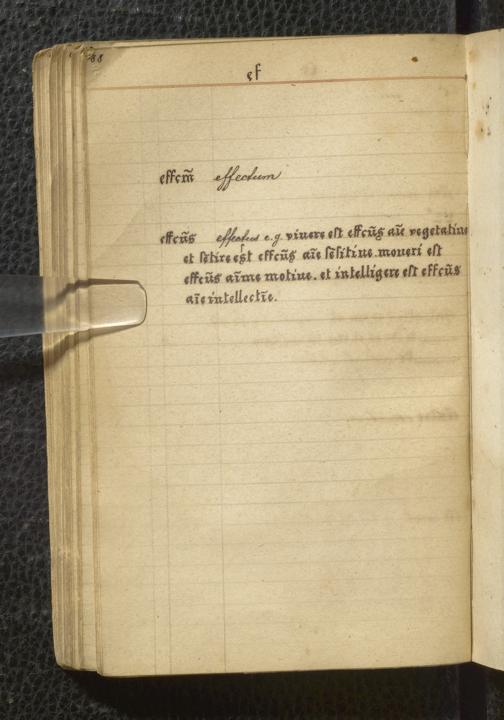 88
ef
effcm̄ effectum
effcūs effectus e.g. viuere est effcūs aīe vegetatiue
et sētire est effcūs aīe sēsitiue. moueri est
effcūs aīme motiue. et intelligere est effcūs
aīe intellectīe.